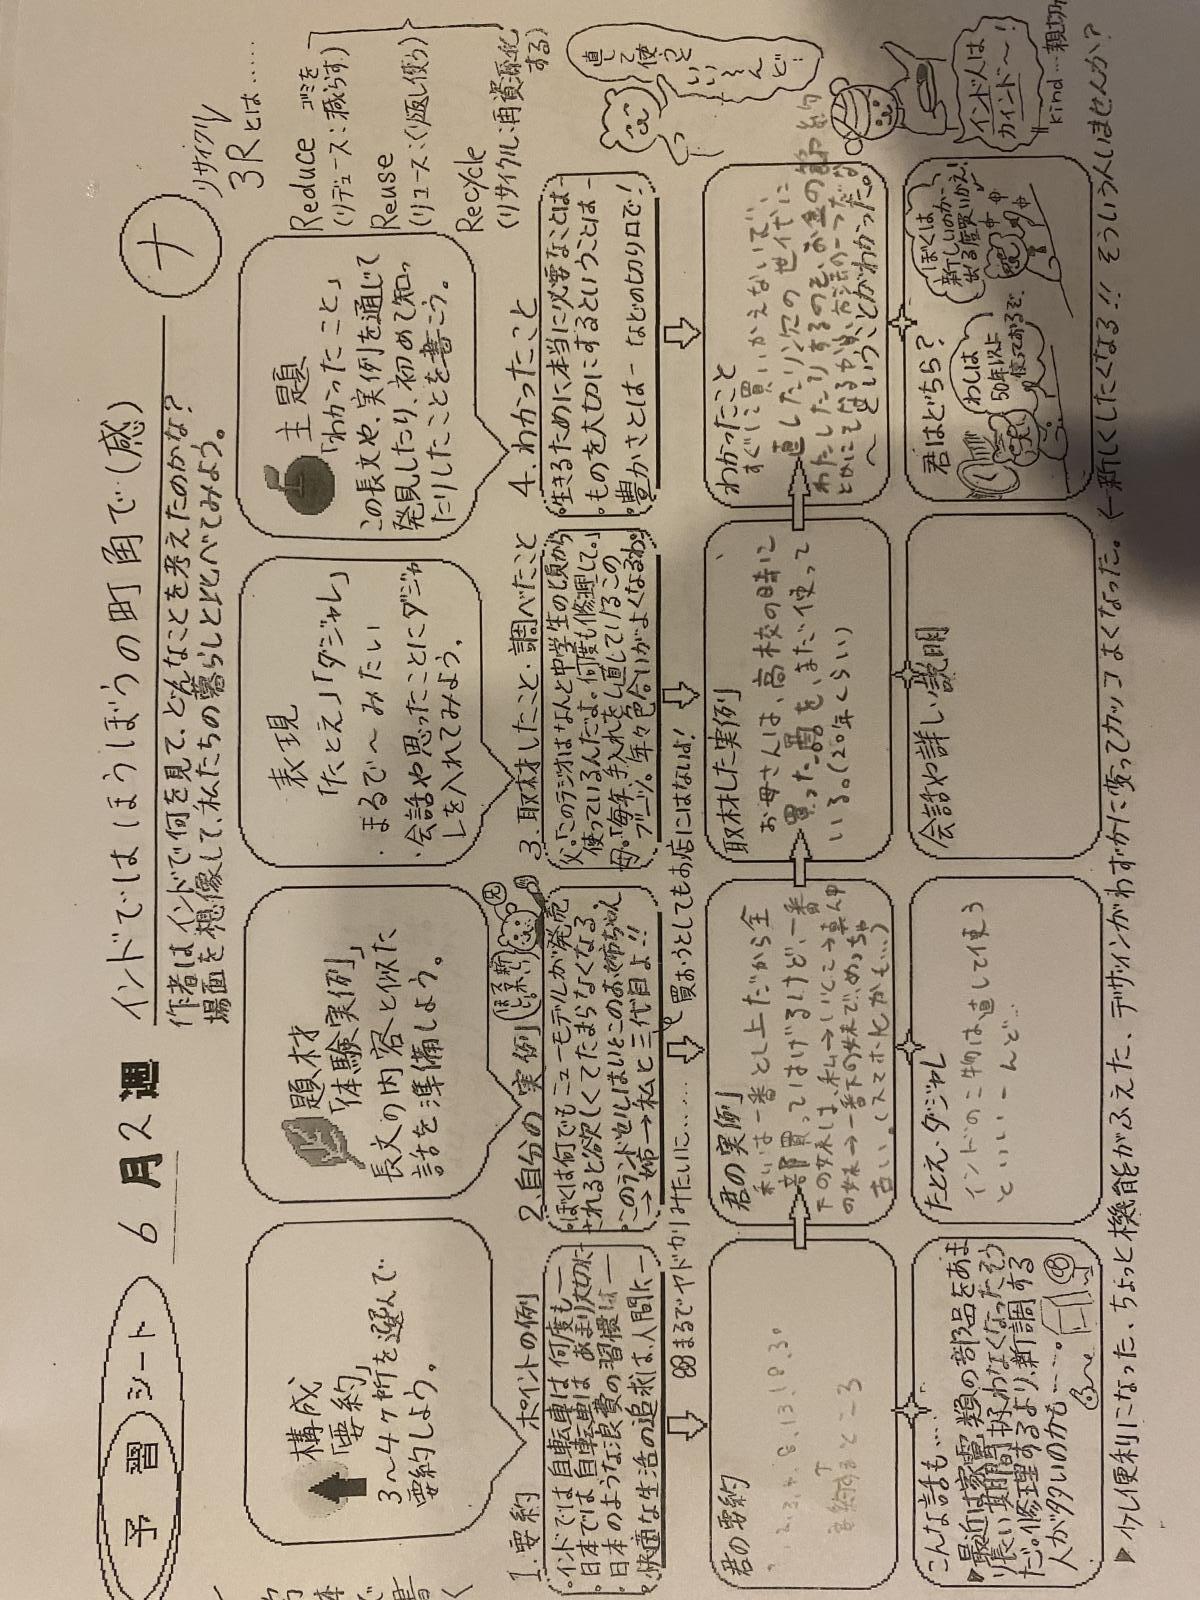 予習シート
6月2週
インドではほうぼうの町角で(感)
ナ
作者はインドで何を見て、どんなことを考えたのかな?
場面を想像して、私たちの暮らしと比べてみよう。
リサイクル
3Rとは……
Reduce ゴミを
(リデュース:減らす)
Reuse
(リユース:くり返し使う)
Recycle
(リサイクル:再資源化
する)
構成
「要約」
3〜4ヶ所を選んで
要約しよう。
題材
「体験実例」
長文の内容と似た
話を準備しよう。
表現
「たとえ」「ダジャレ」
・まるで〜みたい
・会話や思ったことにダジャ
レを入れてみよう。
主題
「わかったこと」
この長文や、実例を通じて
発見したり、初めて知っ
たりしたことを書こう。
1.要約 ポイントの例
・インドでは自転車は何度も―
・日本では自転車はあまり大切に―
・日本のような浪費の習慣は―
・快適な生活の追求は、人間に―
2.自分の実例
・ぼくは何でもニューモデルが発売
されると欲しくてたまらなくなる。
・このランドセルはいとこのお姉ちゃん
→姉→私と三代目よ!!
3.取材したこと・調べたこと
父「このラジオはなんと中学生の頃から
使っているんだよ。何度も修理して。」
母「毎年手入れをし直しているこの
ブーツ。年々色合いがよくなるわ。」
4.わかったこと
・生きるために本当に必要なことは―
・ものを大切にするということは―
・豊かさとは― などの切り口で!
直して使うといいんど!
インド人はカインド〜!
kind…親切
まるでヤドカリみたいに……
買おうとしてもお店にはないよ!
君の要約
要約するところ
君の実例
私は一番とし上だから全
部買ってはもらえるけど、一番
下の妹は、私→いとこ→真ん中
の妹→一番下の妹で、めっちゃ
古い。(スマホとかも…)
取材した実例
お母さんは、高校の時に
買った靴を、まだ使って
いる。(20年くらい)
わかったこと
すぐに買いかえないで、
直したり次の世代に
わたしたりするのも、お金の節約
とかにもなるから
ということがわかった。
こんな話も……
▶最近は家電類の部品をあま
り長い期間扱わなくなったそう
だ。修理するより、新調する
人が多いのかも……。
たとえ・ダジャレ
インドのこ物は直して使う
といいーんど…
会話や詳しい説明
君はどちら?
わしは
50年以上
使っておるぞ。
ぼくは
新しいのが
出る度買いかえ!
▶少し便利になった、ちょっと機能がふえた、デザインがわずかに変ってカッコよくなった。(←新しくしたくなる!!そういう人いませんか?